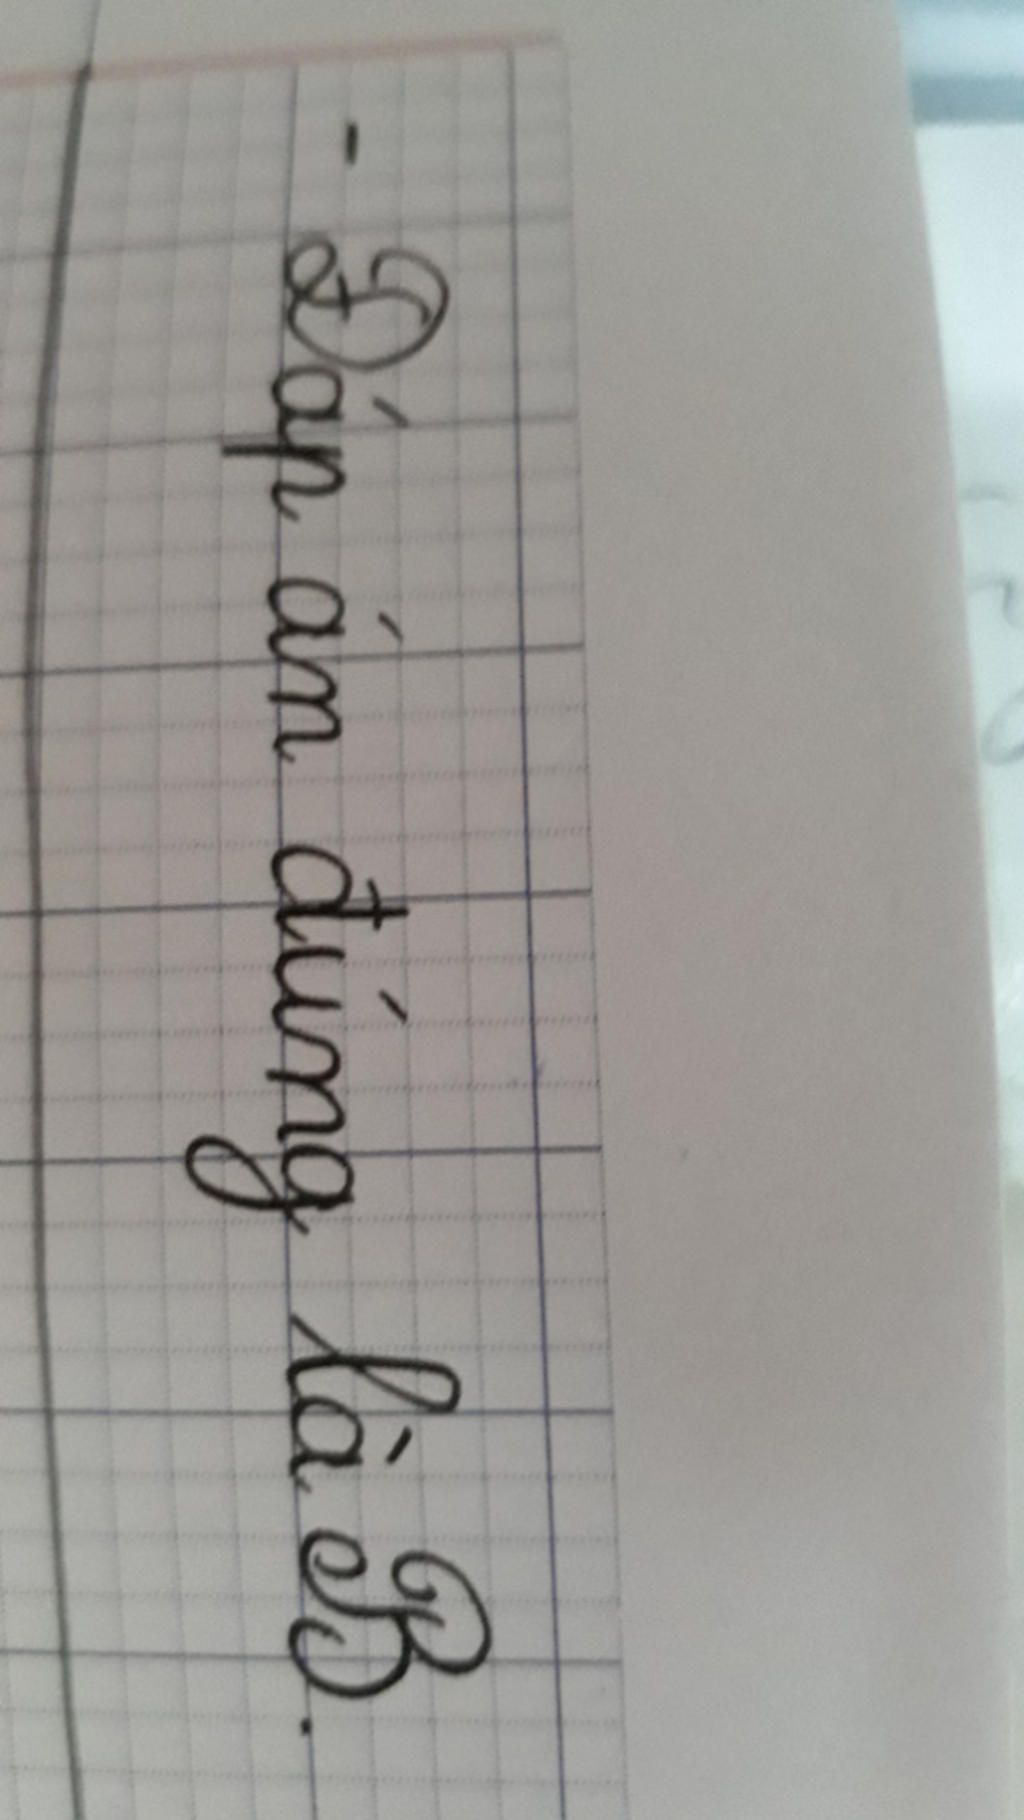 - Đáp án đúng là B.